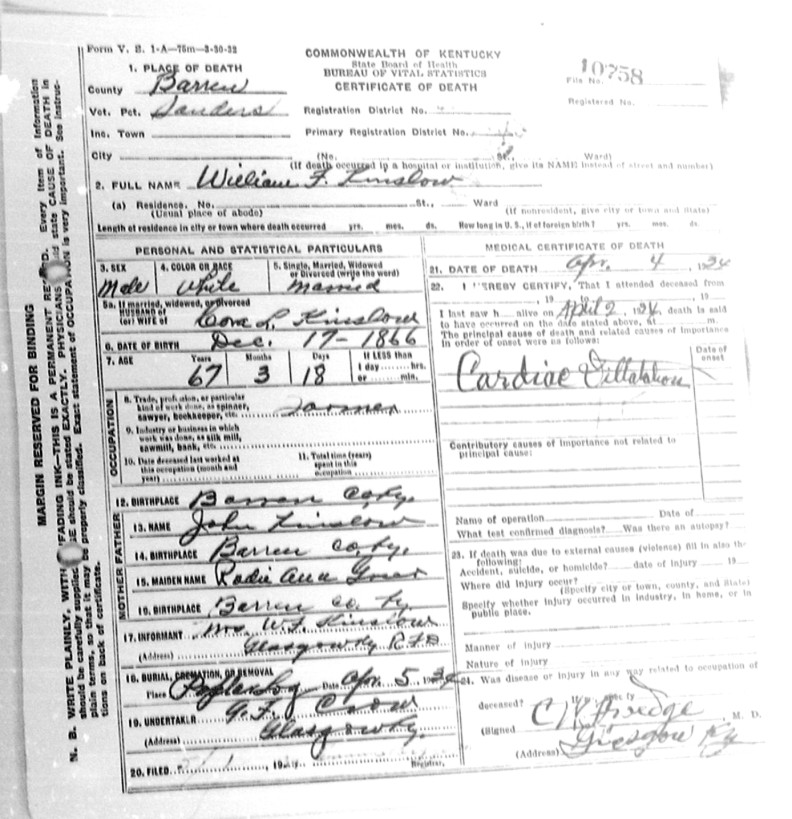 Form V. S. 1-A—75m—3-30-32
COMMONWEALTH OF KENTUCKY
State Board of Health
BUREAU OF VITAL STATISTICS
CERTIFICATE OF DEATH
File No. 10758
Registered No.
1. PLACE OF DEATH
County Barren
Vot. Pct. Sanders
Registration District No.
Inc. Town
Primary Registration District No.
City (No. St. Ward)
(If death occurred in a hospital or institution, give its NAME instead of street and number)
2. FULL NAME William F. Kinslow
(a) Residence. No. St., Ward
(Usual place of abode) (If nonresident, give city or town and State)
Length of residence in city or town where death occurred yrs. mos. ds. How long in U. S., if of foreign birth? yrs. mos. ds.
PERSONAL AND STATISTICAL PARTICULARS
3. SEX 4. COLOR OR RACE 5. Single, Married, Widowed
or Divorced (write the word)
Male White Married
5a. If married, widowed, or divorced
HUSBAND of
(or) WIFE of Cora L. Kinslow
6. DATE OF BIRTH Dec. 17-1866
7. AGE Years Months Days If LESS than
1 day hrs.
or min.
67 3 18
OCCUPATION
8. Trade, profession, or particular
kind of work done, as spinner,
sawyer, bookkeeper, etc. Farmer
9. Industry or business in which
work was done, as silk mill,
sawmill, bank, etc.
10. Date deceased last worked at
this occupation (month and
year)
11. Total time (years)
spent in this
occupation
12. BIRTHPLACE Barren Co. Ky.
FATHER
13. NAME John Kinslow
14. BIRTHPLACE Barren Co. Ky.
MOTHER
15. MAIDEN NAME Rodie Ann
16. BIRTHPLACE Barren Co. Ky
17. INFORMANT Mrs W. F. Kinslow
(Address) Glasgow Ky RFD
18. BURIAL, CREMATION, OR REMOVAL
Place Date Apr. 5 1934
19. UNDERTAKER G. F.
(Address) Glasgow Ky.
20. FILED 19 Registrar.
MEDICAL CERTIFICATE OF DEATH
21. DATE OF DEATH Apr. 4 1934
22. I HEREBY CERTIFY, That I attended deceased from
, 19 , 19
I last saw h alive on April 2, 1934, death is said
to have occurred on the date stated above, at m.
The principal cause of death and related causes of importance
in order of onset were as follows:
Date of
onset
Cardiac Dilatation
Contributory causes of importance not related to
principal cause:
Name of operation Date of
What test confirmed diagnosis? Was there an autopsy?
23. If death was due to external causes (violence) fill in also the
following:
Accident, suicide, or homicide? date of injury 19
Where did injury occur?
(Specify city or town, county, and State)
Specify whether injury occurred in industry, in home, or in
public place.
Manner of injury
Nature of injury
24. Was disease or injury in any way related to occupation of
deceased?
(Signed M. D.
(Address) Glasgow Ky
MARGIN RESERVED FOR BINDING
N. B. WRITE PLAINLY, WITH FADING INK—THIS IS A PERMANENT Every item of information
should be carefully supplied. should be stated EXACTLY. PHYSICIANS state CAUSE OF DEATH in
plain terms, so that it may be properly classified. Exact statement of OCCUPATION is very important. See instruc-
tions on back of certificate.